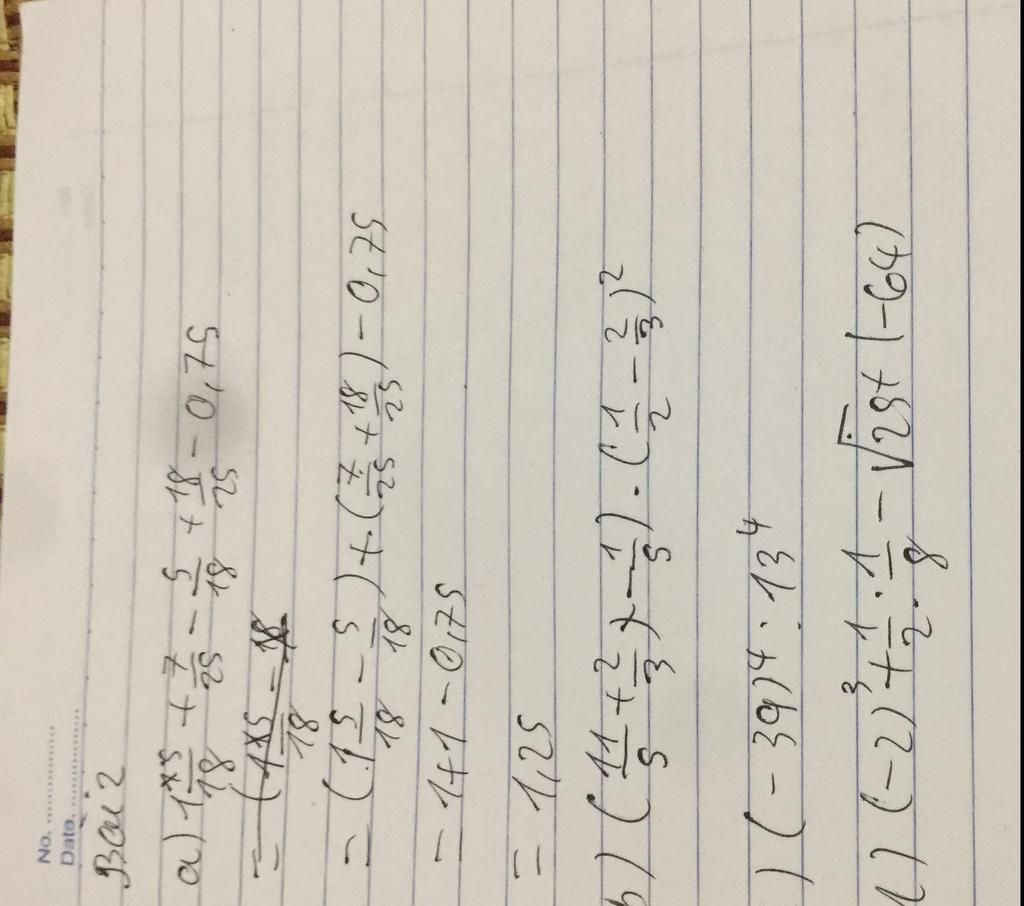 No. ..........
Date. ..........
Bài 2
a) 1 5/18 + 7/25 - 5/18 + 18/25 - 0,75
= (1 5/18 - 5/18) + (7/25 + 18/25) - 0,75
= 1+1 - 0,75
= 1,25
b) (11/5 + 2/3) - 1/5) . (1/2 - 2/3)²
) (-39)⁴ : 13⁴
) (-2)³ + 1/2 . 1/8 - √25 + |-64)